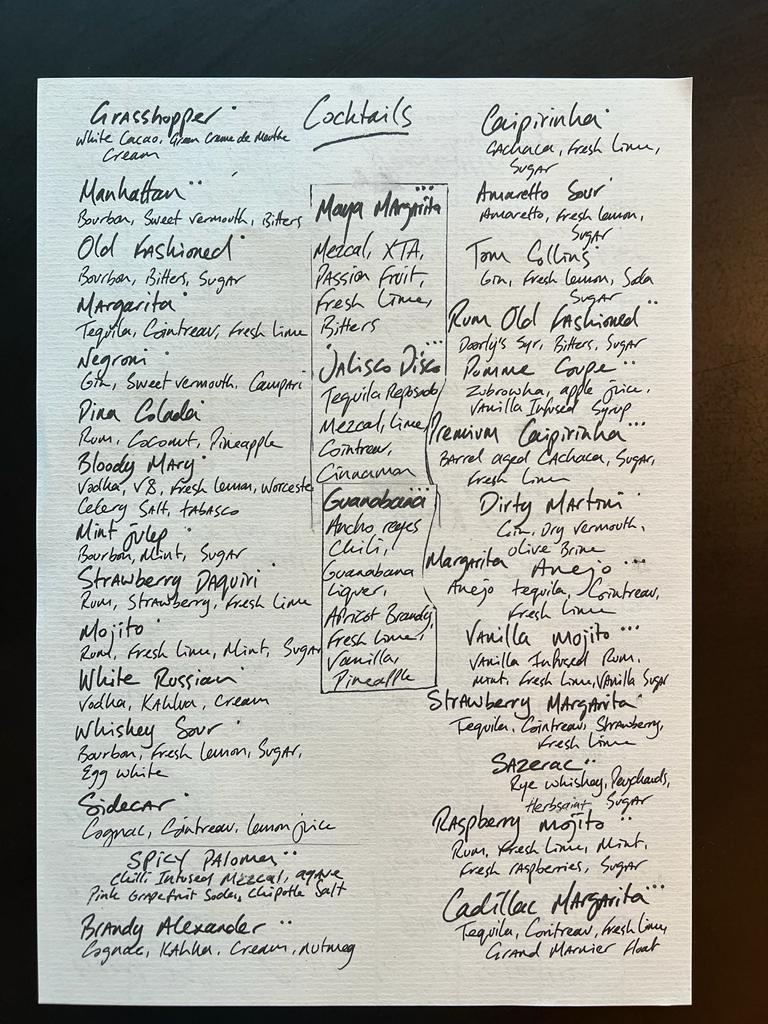 Cocktails
Grasshopper
White Cacao, Green Creme de Menthe
Cream
Manhattan
Bourbon, Sweet vermouth, Bitters
Old Fashioned
Bourbon, Bitters, Sugar
Margarita
Tequila, Cointreau, Fresh Lime
Negroni
Gin, Sweet vermouth, Campari
Pina Colada
Rum, Coconut, Pineapple
Bloody Mary
Vodka, V8, Fresh Lemon, Worceste
Celery Salt, Tabasco
Mint Julep
Bourbon, Mint, Sugar
Strawberry Daquiri
Rum, Strawberry, Fresh Lime
Mojito
Rum, Fresh Lime, Mint, Sugar
White Russian
Vodka, Kahlua, Cream
Whiskey Sour
Bourbon, Fresh Lemon, Sugar,
Egg White
Sidecar
Cognac, Cointreau, Lemon juice
Spicy Paloma
Chilli Infused Mezcal, agave
Pink Grapefruit Soda, Chipotle Salt
Brandy Alexander
Cognac, Kahlua, Cream, Nutmeg
Maya Margarita
Mezcal, XTA,
Passion Fruit,
Fresh Lime,
Bitters
Jalisco Disco
Tequila Reposado
Mezcal, Lime,
Cointreau,
Cinnamon
Guanabana
Ancho reyes
Chili,
Guanabana
Liquer,
Apricot Brandy,
Fresh Lime,
Vanilla,
Pineapple
Caipirinha
Cachaca, Fresh Lime,
Sugar
Amaretto Sour
Amaretto, Fresh Lemon,
Sugar
Tom Collins
Gin, Fresh Lemon, Soda
Sugar
Rum Old Fashioned
Doorly's 5yr, Bitters, Sugar
Pomme Coupe
Zubrowka, apple juice,
Vanilla Infused Syrup
Premium Caipirinha
Barrel aged Cachaca, Sugar,
Fresh Lime
Dirty Martini
Gin, Dry vermouth,
Olive Brine
Margarita Anejo
Anejo tequila, Cointreau,
Fresh Lime
Vanilla Mojito
Vanilla Infused Rum,
Mint, Fresh Lime, Vanilla Sugar
Strawberry Margarita
Tequila, Cointreau, Strawberry,
Fresh Lime
Sazerac
Rye whiskey, Peychauds,
Herbsaint, Sugar
Raspberry Mojito
Rum, Fresh Lime, Mint,
Fresh raspberries, Sugar
Cadillac Margarita
Tequila, Cointreau, Fresh Lime,
Grand Marnier Float